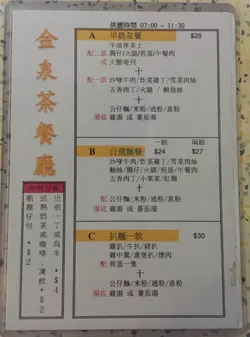 金泉茶餐廳
供應時間 07:00 - 11:30
A 早晨皇餐 $28
牛油厚多士
配二款 腸仔/火腿/煎蛋/午餐肉
或 火腿奄列
+
配一款 沙嗲牛肉/炸菜肉丁/雪菜肉絲
五香肉丁/火腿/鮑魚絲
+
公仔麵/米粉/通粉/意粉
湯底 雞湯 或 蕃茄湯
一餸 兩餸
B 自選麵餐 $24 $27
沙嗲牛肉/炸菜肉丁/雪菜肉絲
鮑絲/腸仔/火腿/煎蛋/午餐肉
五香肉丁/小棠菜/紅腸
+
公仔麵/米粉/通粉/意粉
湯底 雞湯 或 蕃茄湯
C 扒麵一款 $30
雞扒/牛扒/豬扒
雞中翼/漢堡扒/燒肉
配 煎蛋一隻
+
公仔麵/米粉/通粉/意粉
湯底 雞湯 或 蕃茄湯
出前一丁或烏冬 +$4
送熱奶茶或咖啡,凍飲 +$2
脆豬仔包 +$2